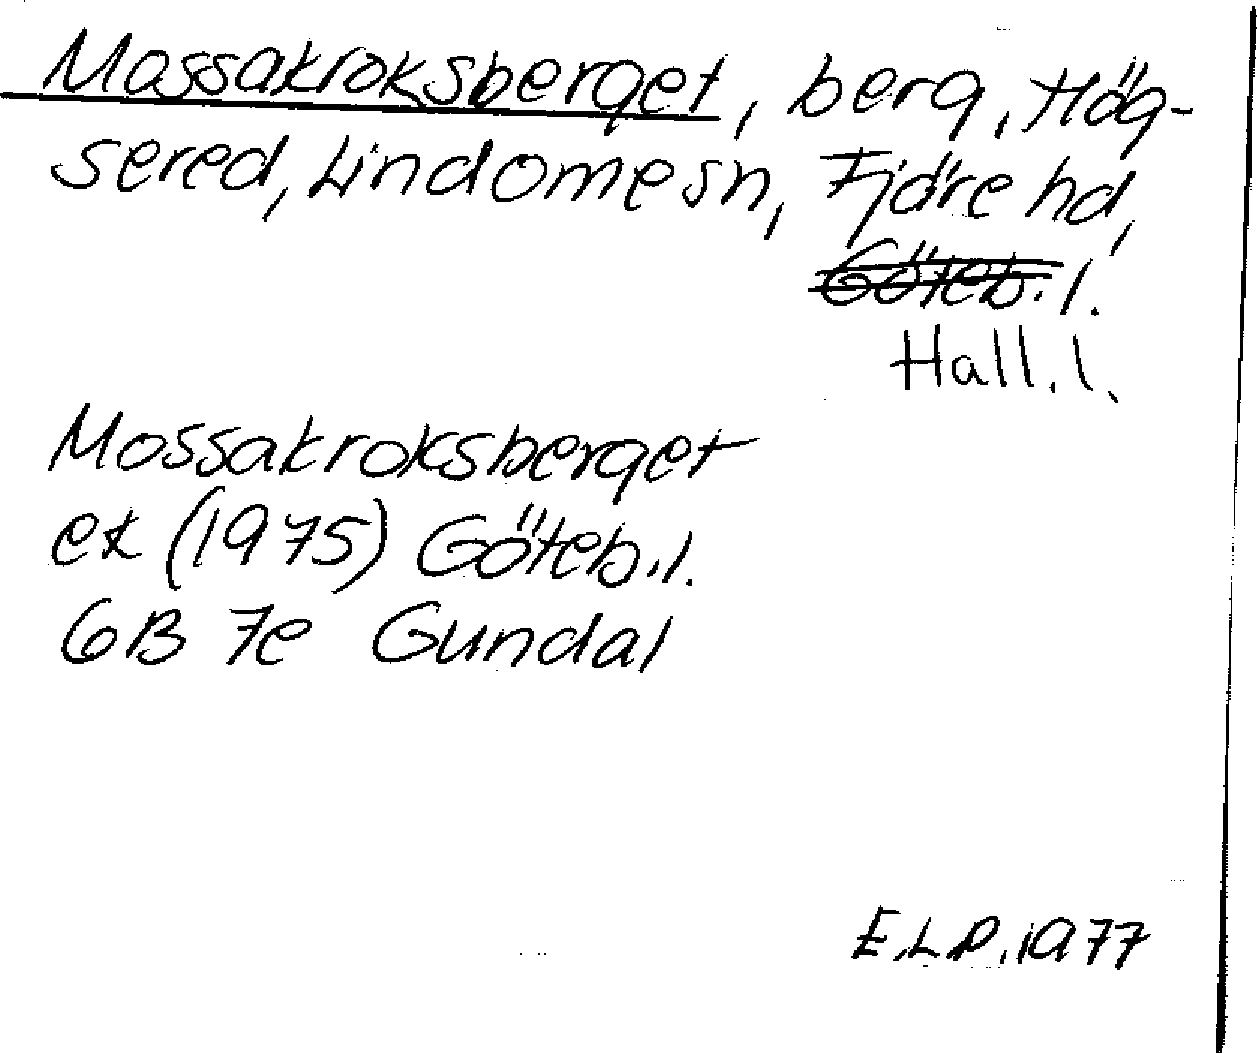 Mossakroksberget, berg, Hög-
sered, Lindome sn, Fjäre hd,
Göteb. l.
Hall. l.
Mossakroksberget
ek (1975) Göteb. l.
6B 7e Gundal
E.L.P. 1977